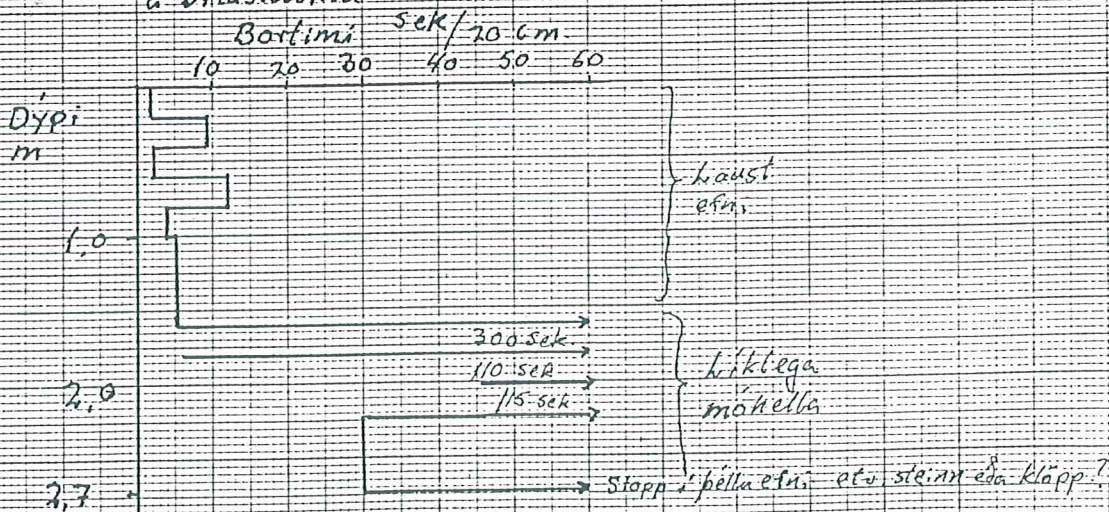 Bortími sek/20 cm.
10 20 30 40 50 60
Dýpi
m
Laust
efni
1,0
300 sek
110 sek
115 sek
Líklega
móhella
2,0
Stopp í þéttu efni etv. steinn eða klöpp?
2,7